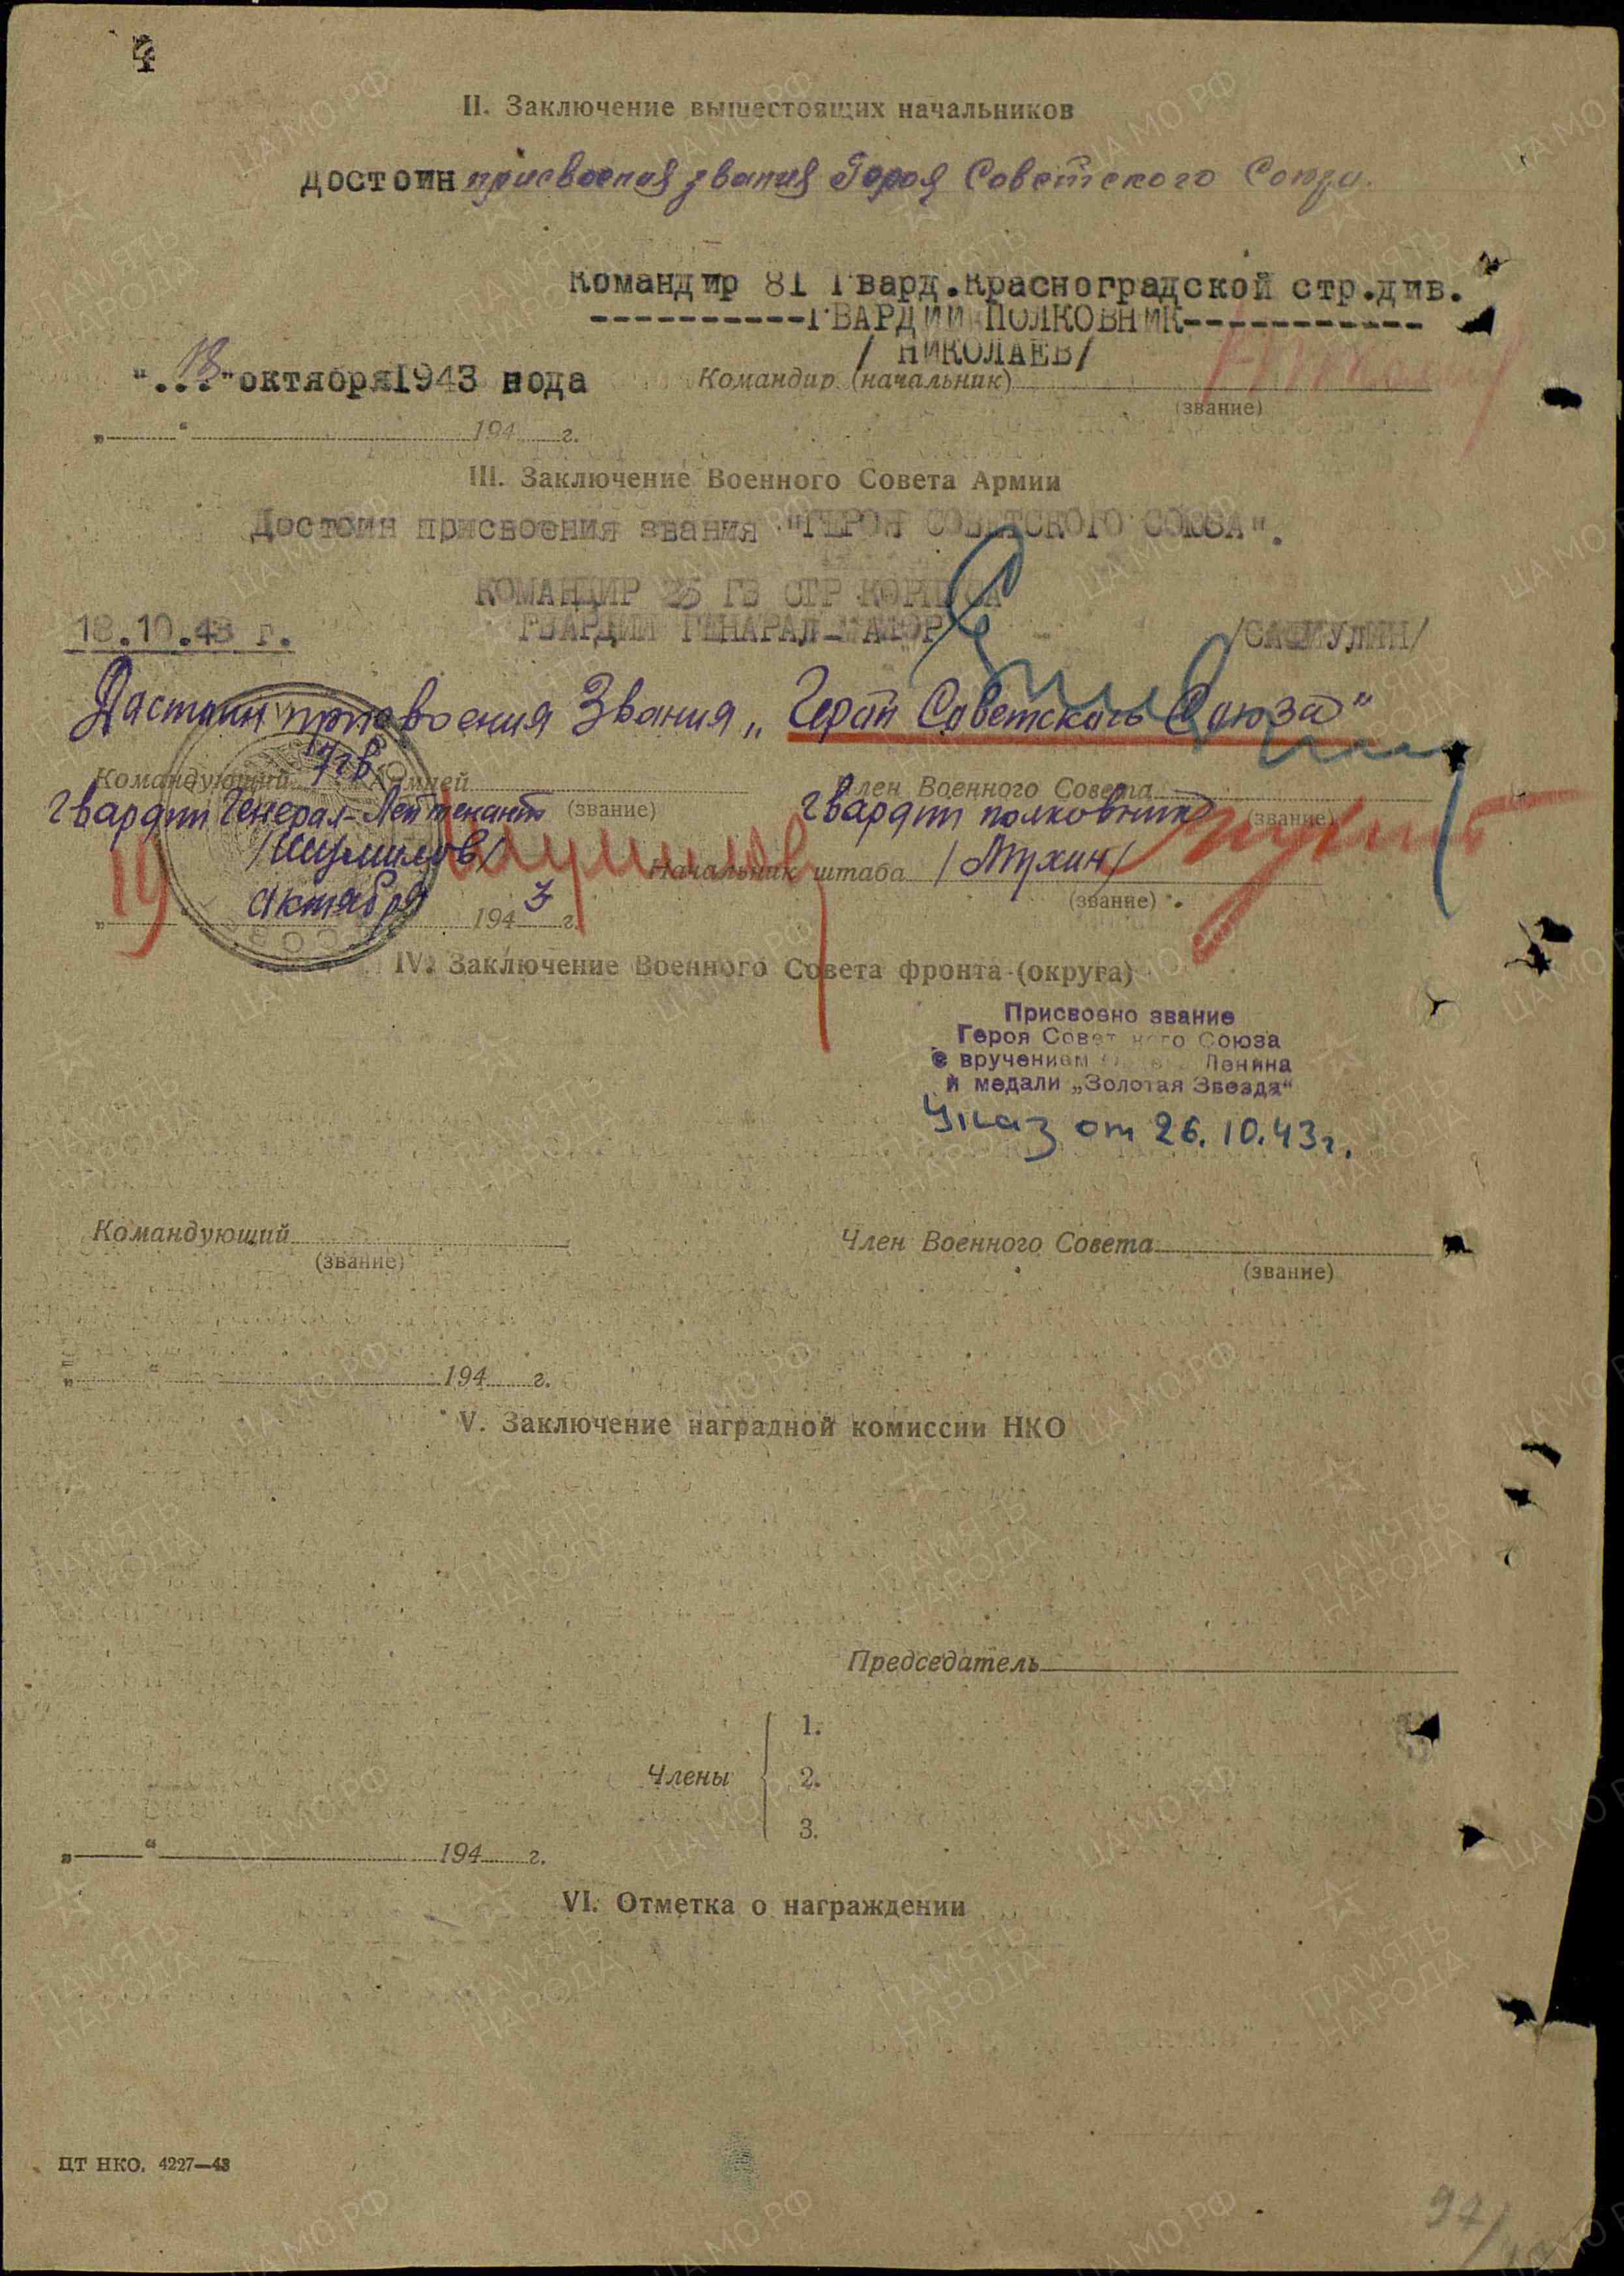 4
II. Заключение вышестоящих начальников
достоин присвоения звания Героя Советского Союза.
Командир 81 Гвард.Красноградской стр.див.
----------ГВАРДИИ ПОЛКОВНИК-----------
/ НИКОЛАЕВ/
"...18"октября1943 нода
Командир (начальник)
(звание)
„ “ 194 г.
III. Заключение Военного Совета Армии
Достоин присвоения звания "ГЕРОЯ СОВЕТСКОГО СОЮЗА".
КОМАНДИР 25 ГВ СТР КОРПУСА
18.10.43 г.
ГВАРДИИ ГЕНАРАЛ-МАЙОР /САФИУЛИН/
Достоин присвоения Звания „Герой Советского Союза“
Командующий 7 гв. Армией Член Военного Совета
гвардии Генерал-Лейтенант (звание) гвардии полковник (звание)
/Шумилов/ Шумилов
Начальник штаба /Мухин/
(звание)
19 октября 1943 г.
IV. Заключение Военного Совета фронта (округа)
Присвоено звание
Героя Советского Союза
с вручением Ленина
и медали „Золотая Звезда“
Указ от 26.10.43г.
Командующий Член Военного Совета
(звание) (звание)
„ “ 194 г.
V. Заключение наградной комиссии НКО
Председатель
Члены
1.
2.
3.
„ “ 194 г.
VI. Отметка о награждении
ЦТ НКО. 4227—43
ПАМЯТЬ НАРОДА
ЦА МО РФ